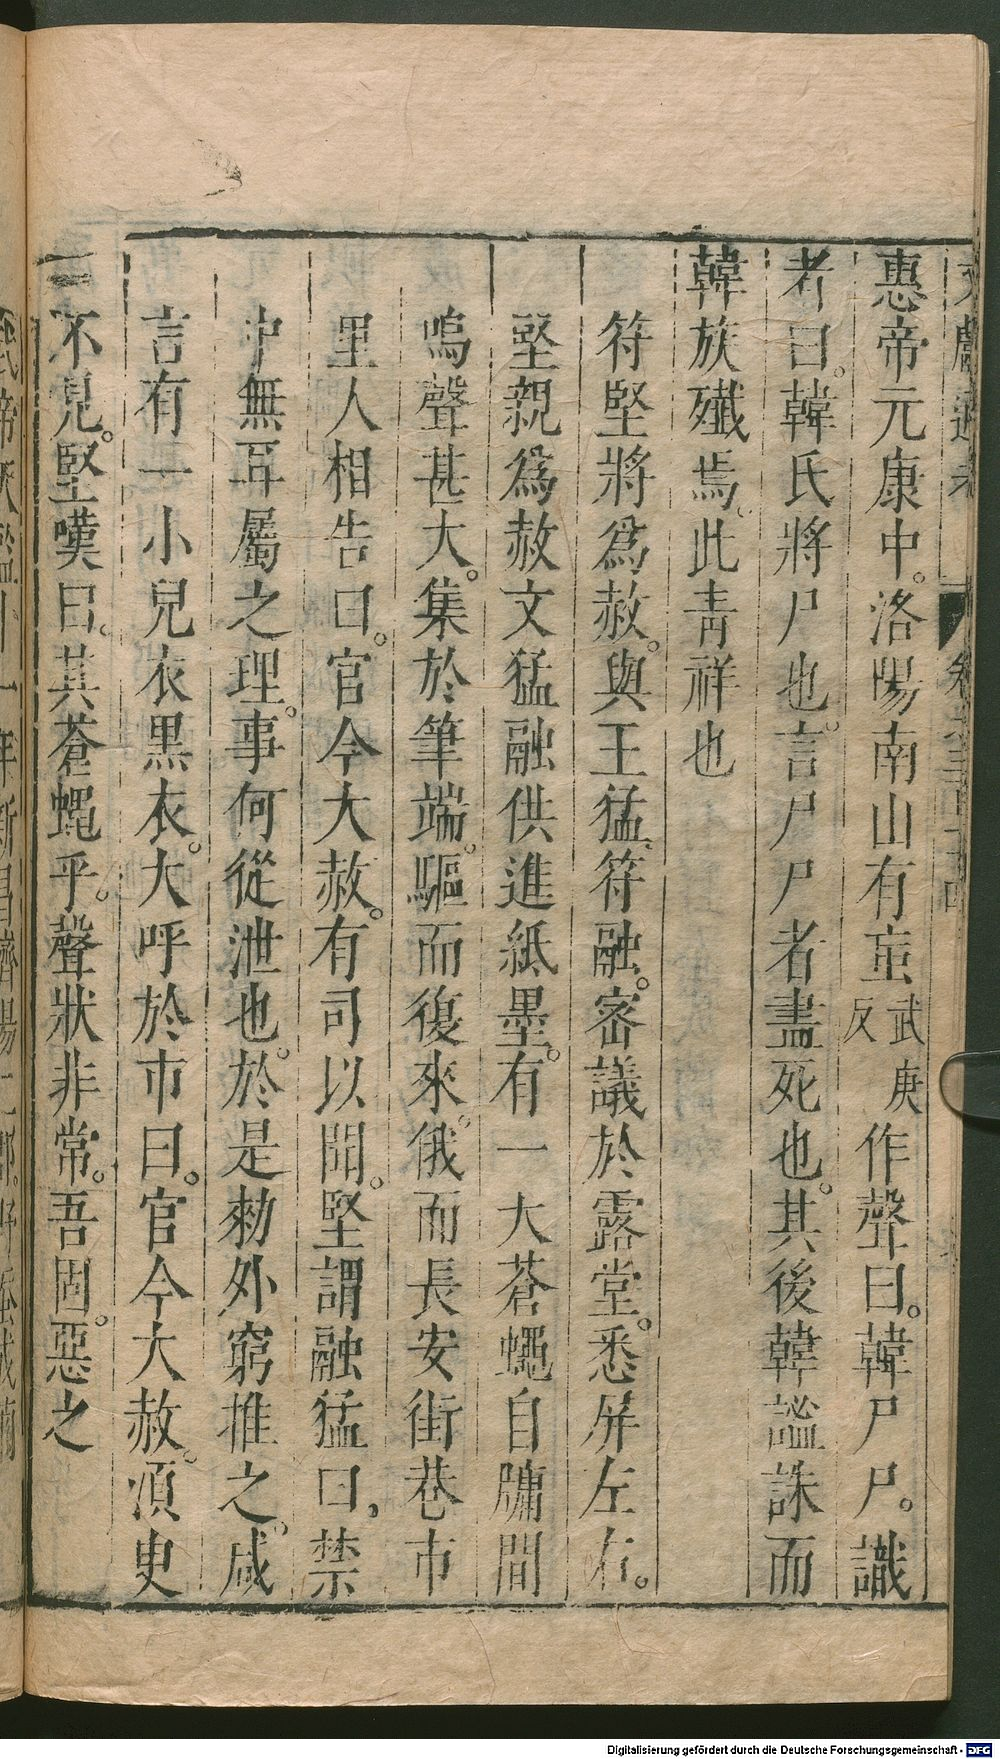 惠帝元康中。洛陽南山有䖟武庚反作聲曰。韓尸尸。識
者曰。韓氏將尸也。言尸尸者盡死也。其後韓謐誅而
韓族殲焉。此青祥也
符堅將爲赦。與王猛符融。密議於露堂。悉屏左右。
堅親爲赦文猛融供進紙墨。有一大蒼蠅自牖間
鳴聲甚大。集於筆端。驅而復來。俄而長安街巷市
里人相告曰。官今大赦。有司以聞。堅謂融猛曰，禁
中無耳屬之理。事何從泄也。於是勑外窮推之。咸
言有一小兒衣黒衣。大呼於市曰。官今大赦。須臾
不見。堅嘆曰。其蒼蝇乎。聲狀非常。吾固。惡之
Digitalisierung gefördert durch die Deutsche Forschungsgemeinschaft - DFG